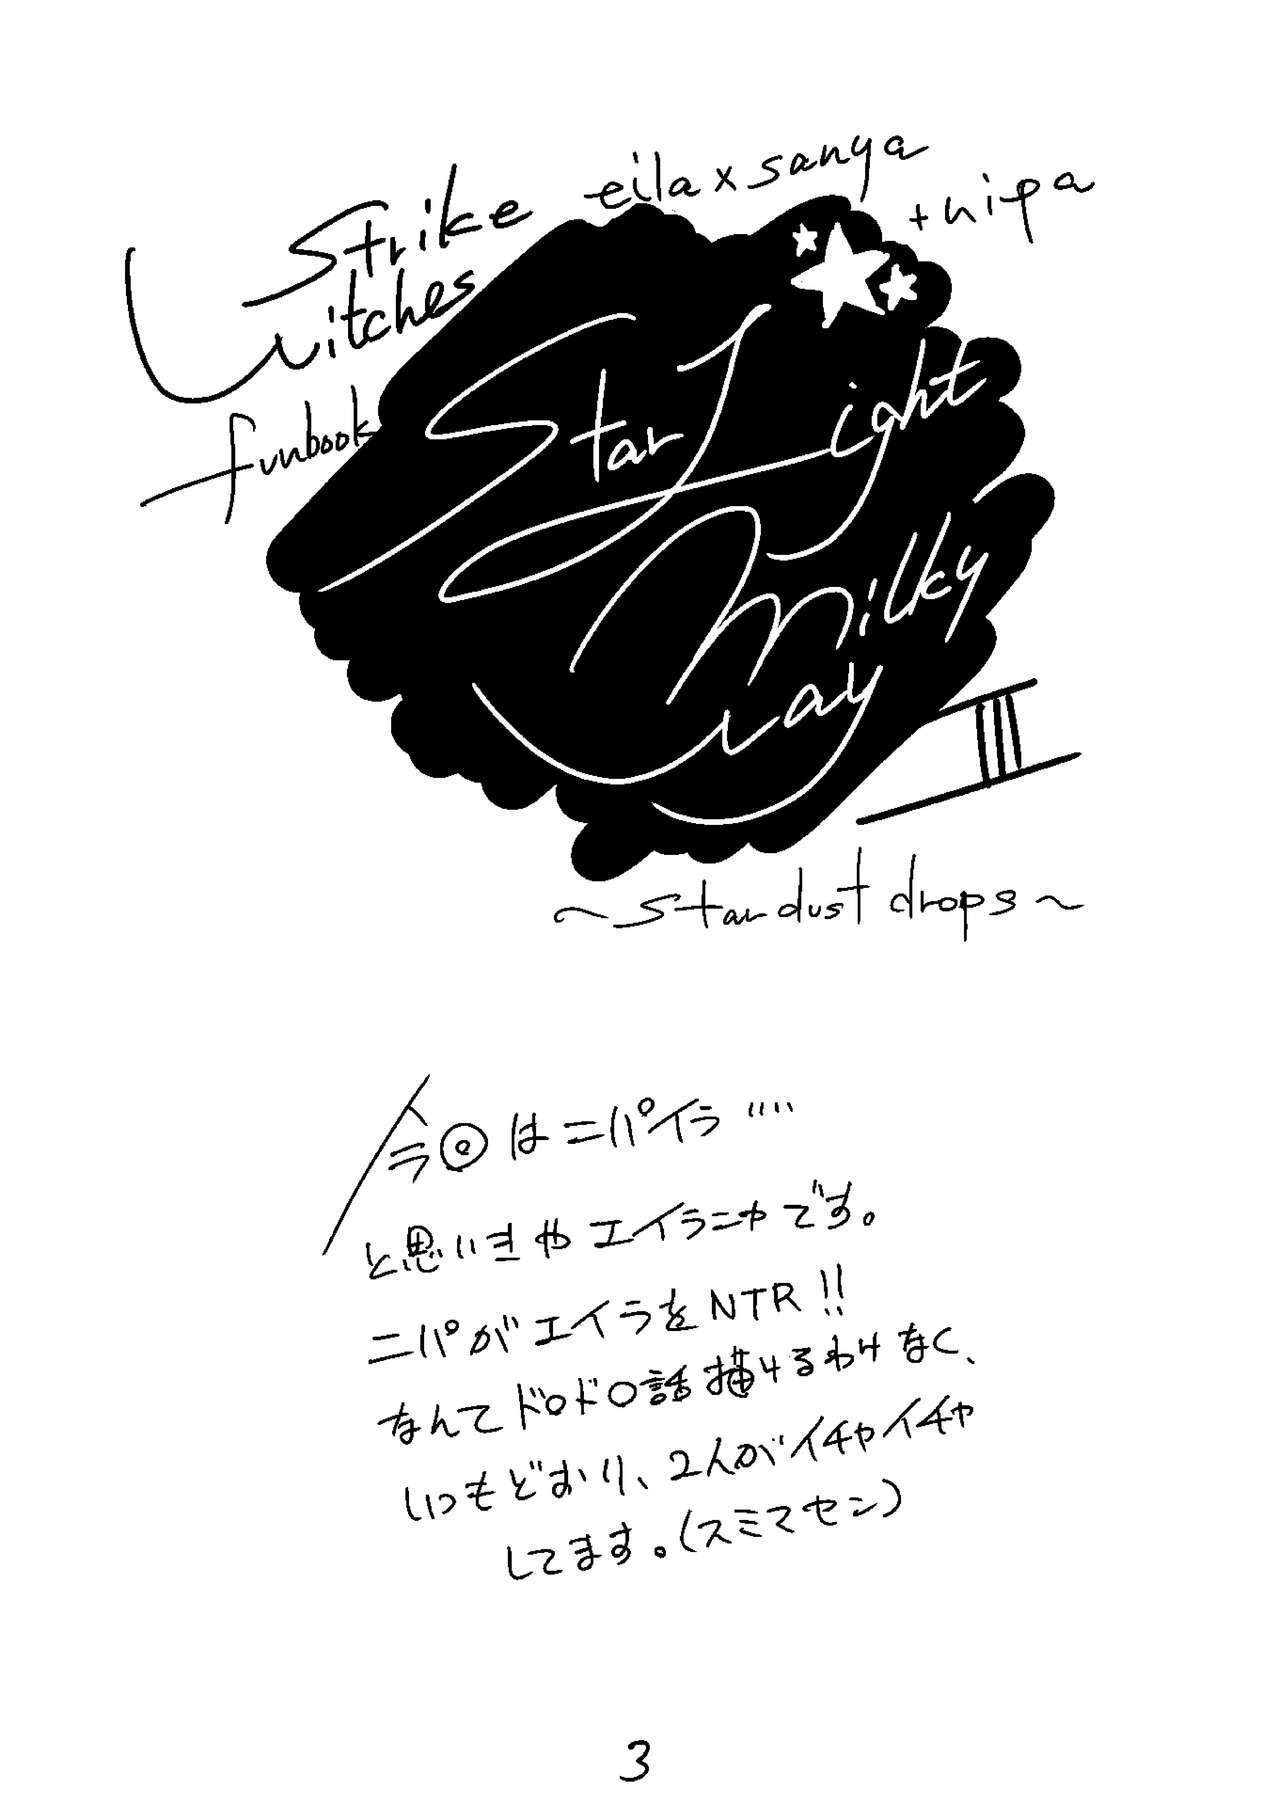 Strike
Witches
funbook
eila x sanya
+ nipa
Star Light
Milky
Way
III
~stardust drops~
今回はニパイラ…
と思いきやエイラニャです。
ニパがエイラをNTR!!
なんてドロドロ話描けるわけなく、
いつもどおり、2人がイチャイチャ
してます。(スミマセン)
3